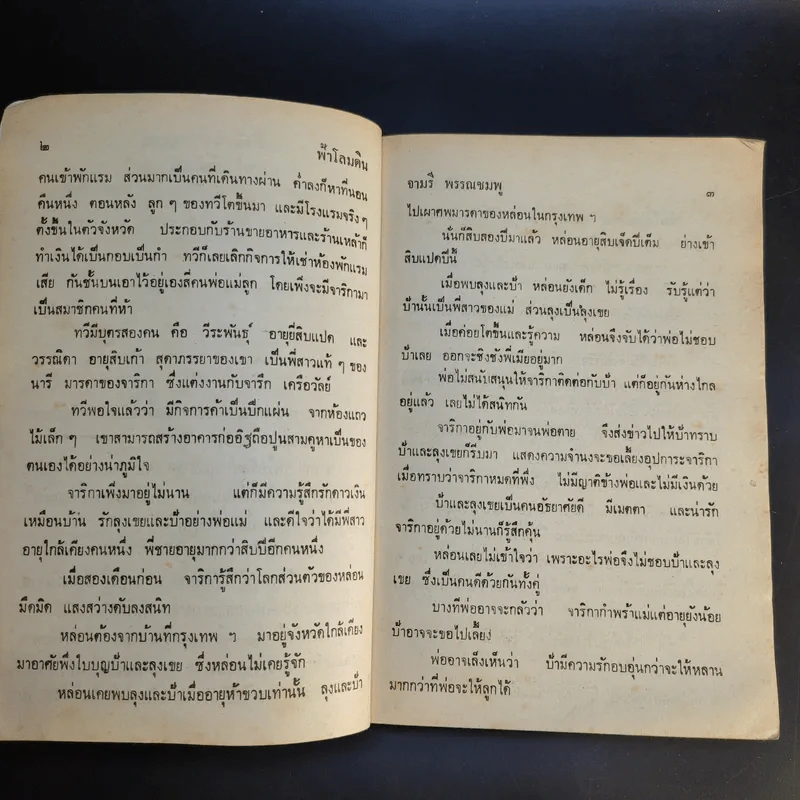 ๒
ฟ้าโลมดิน
คนเข้าพักแรม ส่วนมากเป็นคนที่เดินทางผ่าน ค่ำลงก็หาที่นอน
คืนหนึ่ง ตอนหลัง ลูก ๆ ของทวีโตขึ้นมา และมีโรงแรมจริง ๆ
ตั้งขึ้นในตัวจังหวัด ประกอบกับร้านขายอาหารและร้านเหล้าก็
ทำเงินได้เป็นกอบเป็นกำ ทวีก็เลยเลิกกิจการให้เช่าห้องพักแรม
เสีย กันชั้นบนเอาไว้อยู่เองสี่คนพ่อแม่ลูก โดยเพิ่งจะมีจาริกามา
เป็นสมาชิกคนที่ห้า
ทวีมีบุตรสองคน คือ วีระพันธุ์ อายุยี่สิบแปด และ
วรรณิดา อายุสิบเก้า สุดาภรรยาของเขา เป็นพี่สาวแท้ ๆ ของ
นารี มารดาของจาริกา ซึ่งแต่งงานกับจารึก เครือวัลย์
ทวีพอใจแล้วว่า มีกิจการค้าเป็นปึกแผ่น จากห้องแถว
ไม้เล็ก ๆ เขาสามารถสร้างอาคารก่ออิฐถือปูนสามคูหาเป็นของ
ตนเองได้อย่างน่าภูมิใจ
จาริกาเพิ่งมาอยู่ไม่นาน แต่ก็มีความรู้สึกรักดาวเงิน
เหมือนบ้าน รักลุงเขยและป้าอย่างพ่อแม่ และดีใจว่าได้มีพี่สาว
อายุใกล้เคียงคนหนึ่ง พี่ชายอายุมากกว่าสิบปีอีกคนหนึ่ง
เมื่อสองเดือนก่อน จาริการู้สึกว่าโลกส่วนตัวของหล่อน
มืดมิด แสงสว่างดับลงสนิท
หล่อนต้องจากบ้านที่กรุงเทพ ฯ มาอยู่จังหวัดใกล้เคียง
มาอาศัยพึ่งใบบุญป้าและลุงเขย ซึ่งหล่อนไม่เคยรู้จัก
หล่อนเคยพบลุงและป้าเมื่ออายุห้าขวบเท่านั้น ลุงและป้า
จามรี พรรณชมพู
๓
ไปเผาศพมารดาของหล่อนในกรุงเทพ ฯ
นั่นก็สิบสองปีมาแล้ว หล่อนอายุสิบเจ็ดปีเต็ม ย่างเข้า
สิบแปดปีนี้
เมื่อพบลุงและป้า หล่อนยังเด็ก ไม่รู้เรื่อง รับรู้แต่ว่า
ป้านั้นเป็นพี่สาวของแม่ ส่วนลุงเป็นลุงเขย
เมื่อค่อยโตขึ้นและรู้ความ หล่อนจึงจับได้ว่าพ่อไม่ชอบ
ป้าเลย ออกจะชิงชังพี่เมียอยู่มาก
พ่อไม่สนับสนุนให้จาริกาติดต่อกับป้า แต่ก็อยู่กันห่างไกล
อยู่แล้ว เลยไม่ได้สนิทกัน
จาริกาอยู่กับพ่อมาจนพ่อตาย จึงส่งข่าวไปให้ป้าทราบ
ป้าและลุงเขยก็รีบมา แสดงความจำนงจะขอเลี้ยงอุปการะจาริกา
เมื่อทราบว่าจาริกาหมดที่พึ่ง ไม่มีญาติข้างพ่อและไม่มีเงินด้วย
ป้าและลุงเขยเป็นคนอัธยาศัยดี มีเมตตา และน่ารัก
จาริกาอยู่ด้วยไม่นานก็รู้สึกคุ้น
หล่อนเลยไม่เข้าใจว่า เพราะอะไรพ่อจึงไม่ชอบป้าและลุง
เขย ซึ่งเป็นคนดีด้วยกันทั้งคู่
บางทีพ่ออาจจะกลัวว่า จาริกากำพร้าแม่แต่อายุยังน้อย
ป้าอาจจะขอไปเลี้ยง
พ่ออาจเล็งเห็นว่า ป้ามีความรักอบอุ่นกว่าจะให้หลาน
มากกว่าที่พ่อจะให้ลูกได้